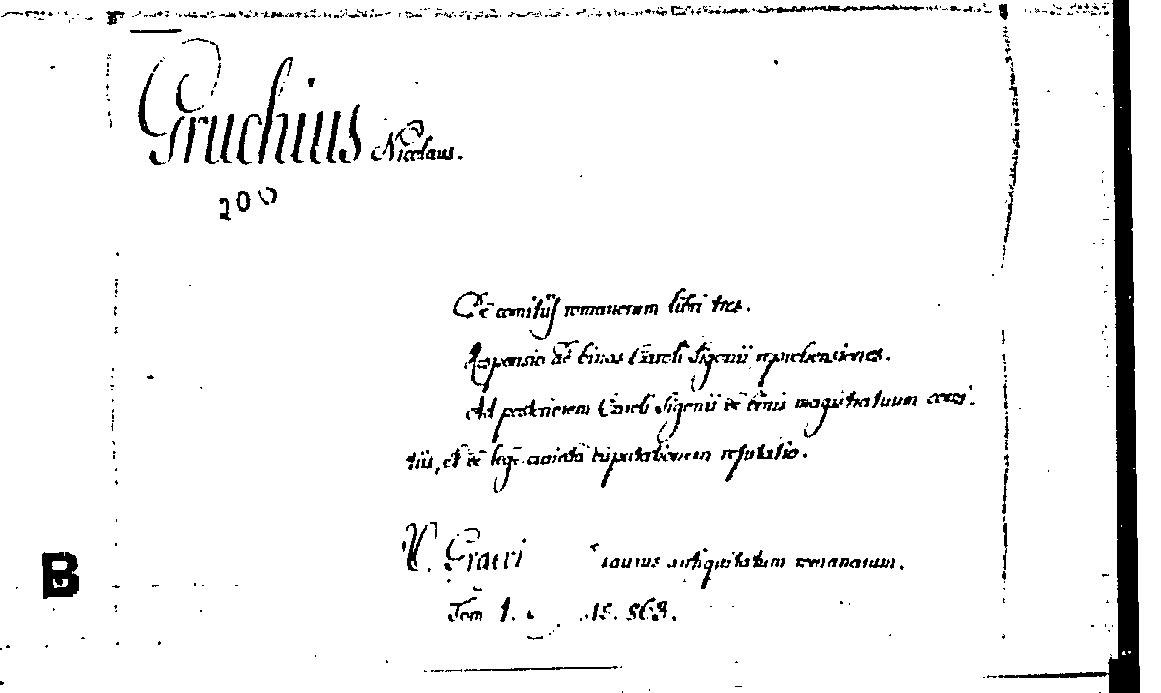 Gruchius Nicolaus.
200
De comitiis romanorum libri tres.
Responsio ad binas Caroli Sigonii reprehensiones.
Ad posteriorem Caroli Sigonii de binis magistratuum comi-
tiis, et de lege curiata disputationem refutatio.
V. Graevi saurus antiquitatum romanarum.
Tom 1. 15. 863.
B